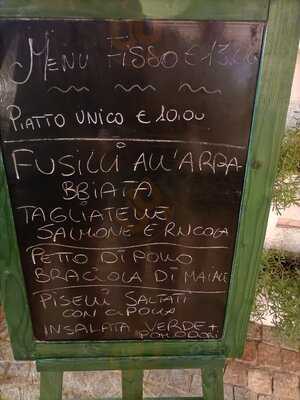 MENU FISSO €13,00
PIATTO UNICO € 10,00
FUSILLI ALL'ARRA
BBIATA
TAGLIATELLE
SALMONE E RUCOLA
PETTO DI POLLO
BRACIOLA DI MAIALE
PISELLI SALTATI
CON CIPOLLA
INSALATA VERDE +
POMODORI